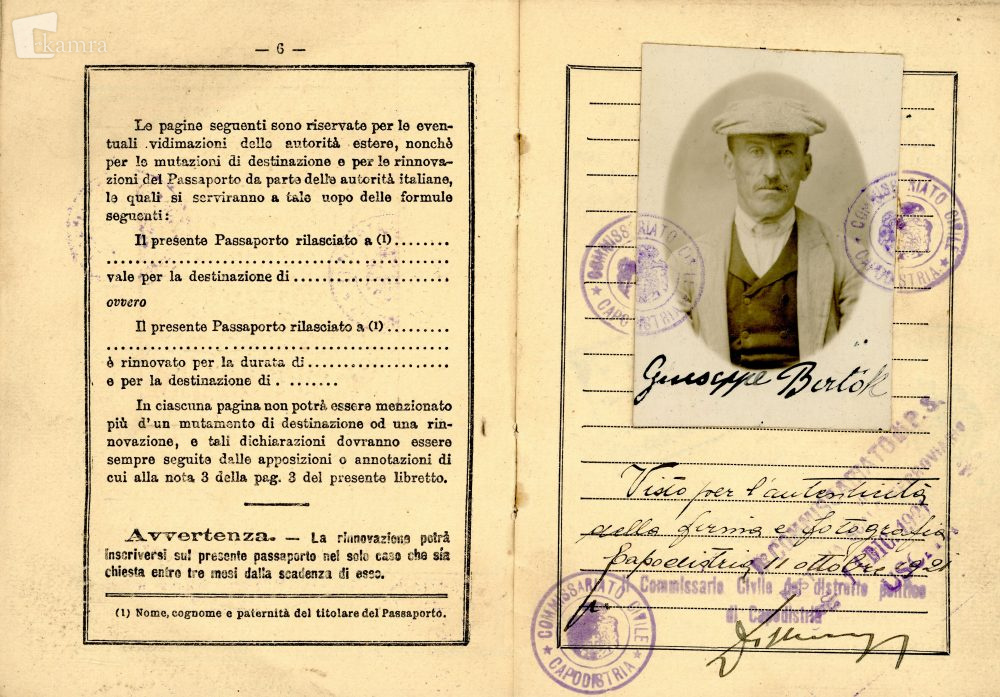 kamra
— 6 —
Le pagine seguenti sono riservate per le even-
tuali vidimazioni delle autorità estere, nonchè
per le mutazioni di destinazione e per le rinnova-
zioni del Passaporto da parte delle autorità italiane,
le quali si serviranno a tale uopo delle formule
seguenti:
Il presente Passaporto rilasciato a (1) ........
........
vale per la destinazione di ........
ovvero
Il presente Passaporto rilasciato a (1) ........
........
è rinnovato per la durata di ........
e per la destinazione di ........
In ciascuna pagina non potrà essere menzionato
più d'un mutamento di destinazione od una rin-
novazione, e tali dichiarazioni dovranno essere
sempre seguite dalle apposizioni o annotazioni di
cui alla nota 3 della pag. 3 del presente libretto.
Avvertenza. — La rinnovazione potrà
inscriversi sul presente passaporto nel solo caso che sia
chiesta entro tre mesi dalla scadenza di esso.
(1) Nome, cognome e paternità del titolare del Passaporto.
COMMISSARIATO CIVILE
CAPODISTRIA
COMMISSARIATO CIVILE
CAPODISTRIA
Giuseppe Bertok
COMMISSARIATO P. S.
Visto per l'autenticità
della firma e fotografia
Capodistria, 11 ottobre 1921
Il Commissario Civile del distretto politico
di Capodistria
COMMISSARIATO CIVILE
CAPODISTRIA